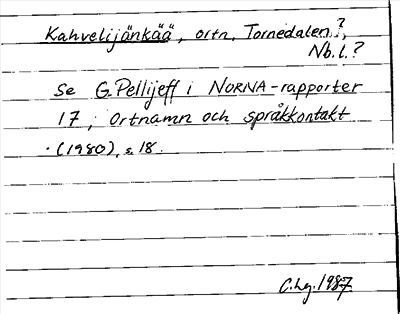 Kahvelijänkää, ortn. Tornedalen?,
Nb.l.?
Se G. Pellijeff i NORNA-rapporter
17, Ortnamn och språkkontakt
(1980), s. 18.
C.hg. 1987